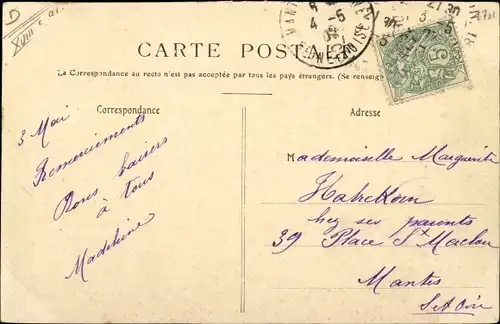 D
XVIII e ar.
2701
CARTE POSTALE
La Correspondance au recto n'est pas acceptée par tous les pays étrangers. (Se renseign
Correspondance
Adresse
3 Mai
Remerciments
Bons baisers
à tous
Madeleine
Mademoiselle Marguerite
Habrekorn
chez ses parents
39 Place St Maclou
Mantes
S et Oise